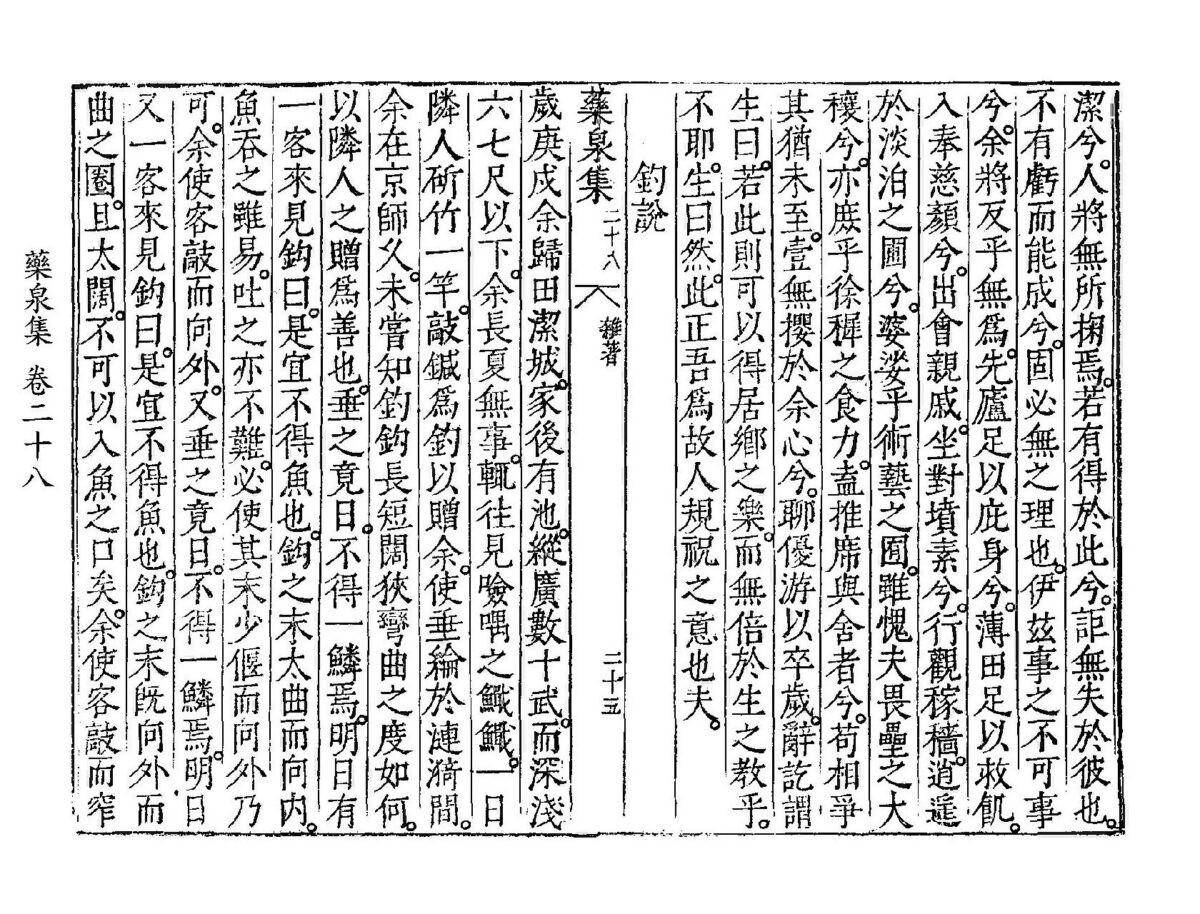 潔兮。人將無所掬焉。若有得於此兮。詎無失於彼也。
不有虧而能成兮。固必無之理也。伊玆事之不可事
兮。余將反乎無爲。先廬足以庇身兮。薄田足以救飢。
入奉慈顔兮。出會親戚。坐對墳素兮。行觀稼穡。逍遙
於淡泊之圃兮。婆娑乎術藝之囿。雖愧夫畏壘之大
穰兮。亦庶乎徐穉之食力。盍推席與舍者兮。苟相爭
其猶未至。壹無攖於余心兮。聊優游以卒歲。辭訖謂
生曰。若此則可以得居鄕之樂。而無倍於生之敎乎。
不耶。生曰然。此正吾爲故人規祝之意也夫。
釣說
藥泉集 二十八 雜著 二十五
歲庚戌余歸田潔城。家後有池。縱廣數十武。而深淺
六七尺以下。余長夏無事。輒往見噞喁之鱵鱵。一日
隣人斫竹一竿。敲鍼爲釣以贈余。使垂綸於漣漪間。
余在京師久。未嘗知釣鈎長短闊狹彎曲之度如何。
以隣人之贈爲善也。垂之竟日。不得一鱗焉。明日有
一客來見鈎曰。是宜不得魚也。鈎之末太曲而向內。
魚呑之雖易。吐之亦不難。必使其末少偃而向外乃
可。余使客敲而向外。又垂之竟日。不得一鱗焉。明日
又一客來見鈎曰。是宜不得魚也。鈎之末旣向外而
曲之圈。且太闊。不可以入魚之口矣。余使客敲而窄
藥泉集 卷二十八